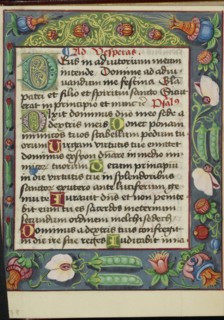 Ad vesperas.
Deus in adiutorium meum
intende. Domine ad adiu
uandum me festina. Gla
patri et filio et spiritui sancto Sicut
erat in principio et nunc Psal⁹
Dixit dominus dño meo sede a
dextris meis Donec ponam
inimicos tuos scabellum pedum tu
orum Uirgam uirtutis tue emittet
dominus ex syon dñare in medio ini
tuorum Tecum principiu
in die uirtutis tue in splendoribus
sanctorum ex utero ante luciferum ge
nui te Iurauit dñs et non peni
bit eum tu es sacerdos in eternum
secundum ordinem melchisedech
Dominus a dextris tuis confregit
in die ire sue reges Iudicabit in na